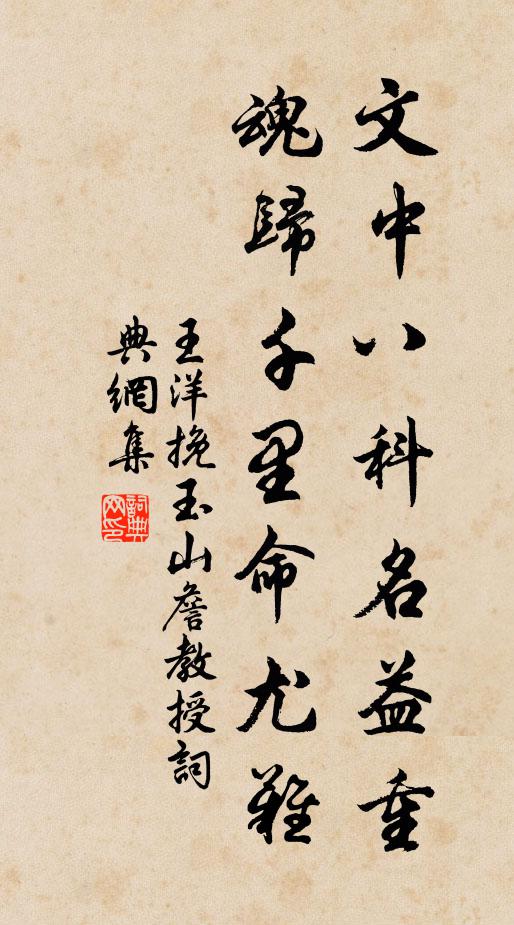 文中八科名益重
魂歸千里命尤難
王洋挽玉山詹教授詞
典網集
詞典網印